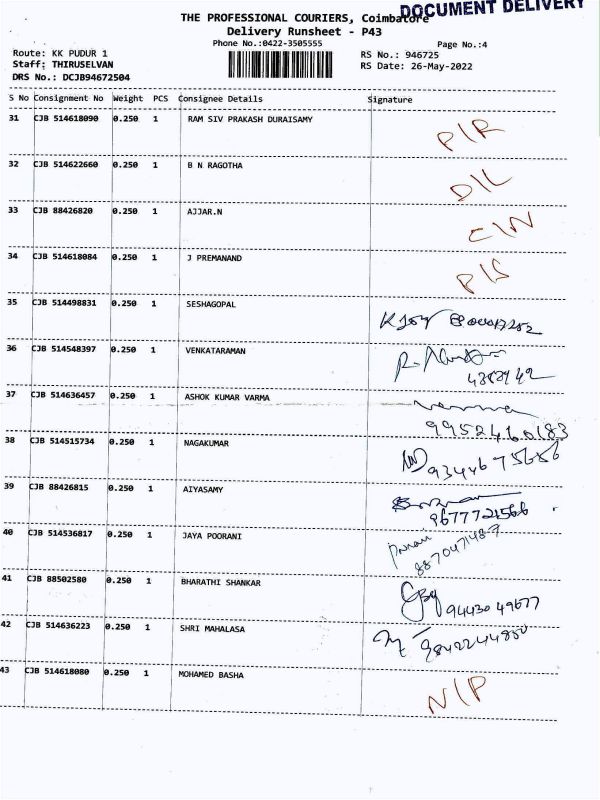 DOCUMENT DELIVERY
THE PROFESSIONAL COURIERS, Coimbatore
Delivery Runsheet - P43
Phone No.:0422-3505555
Page No.:4
Route: KK PUDUR 1
RS No.: 946725
Staff: THIRUSELVAN
RS Date: 26-May-2022
DRS No.: DCJB94672504
S No Consignment No Weight PCS Consignee Details Signature
31 CJB 514618090 0.250 1 RAM SIV PRAKASH DURAISAMY P/R
32 CJB 514622660 0.250 1 B N RAGOTHA D/L
33 CJB 88426820 0.250 1 AJJAR.N C/N
34 CJB 514618084 0.250 1 J PREMANAND P/S
35 CJB 514498831 0.250 1 SESHAGOPAL
36 CJB 514548397 0.250 1 VENKATARAMAN
37 CJB 514636457 0.250 1 ASHOK KUMAR VARMA
9952460183
38 CJB 514515734 0.250 1 NAGAKUMAR
9344675686
39 CJB 88426815 0.250 1 AIYASAMY
9677721566
40 CJB 514536817 0.250 1 JAYA POORANI
8870471487
41 CJB 88502580 0.250 1 BHARATHI SHANKAR
9443049677
42 CJB 514636223 0.250 1 SHRI MAHALASA
9842244850
43 CJB 514618080 0.250 1 MOHAMED BASHA N/P